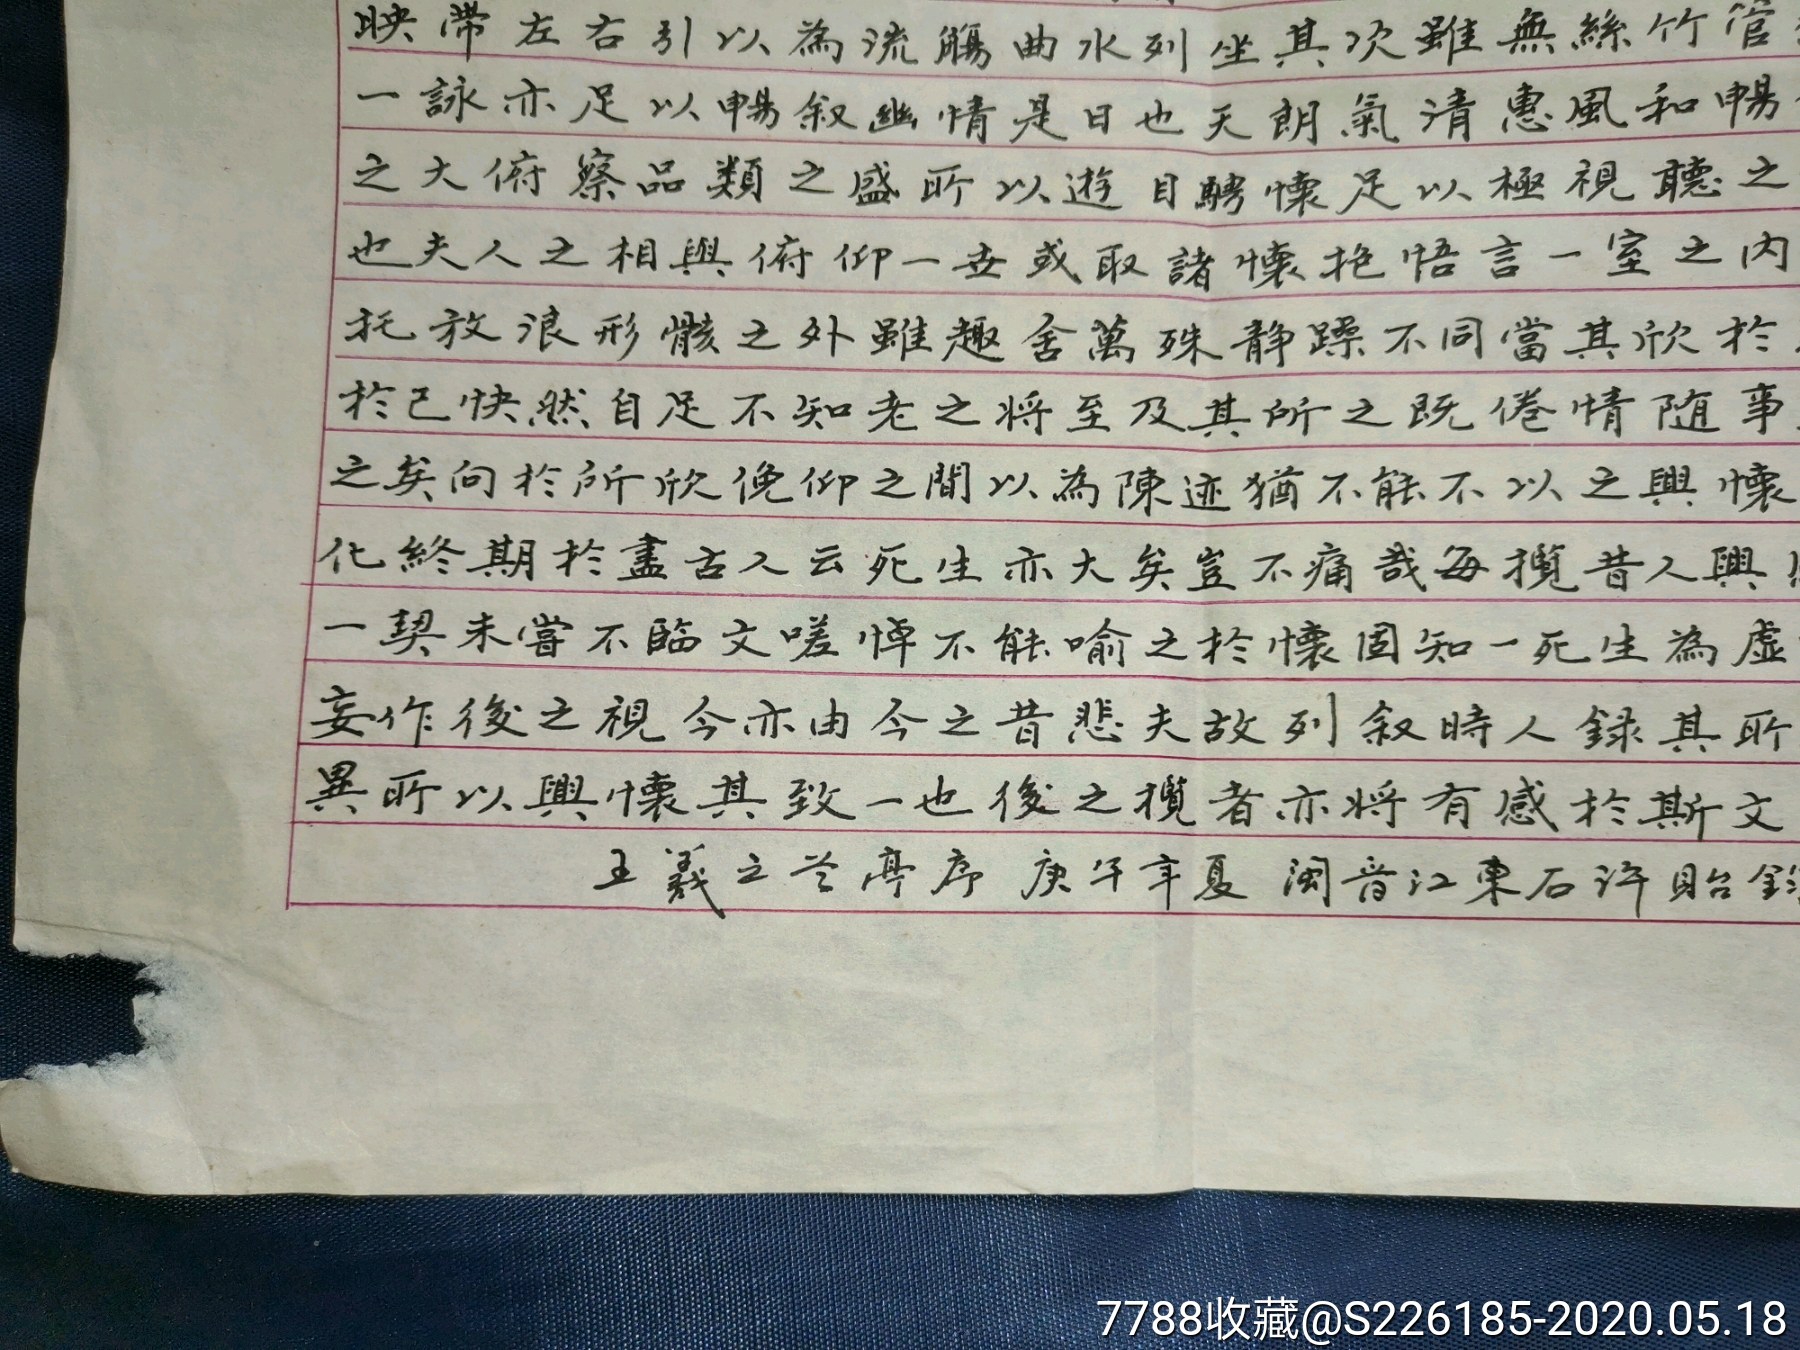 映帶左右引以為流觴曲水列坐其次雖無絲竹管
一詠亦足以暢叙幽情是日也天朗氣清惠風和暢
之大俯察品類之盛所以遊目騁懷足以極視聽之
也夫人之相與俯仰一世或取諸懷抱悟言一室之内
托放浪形骸之外雖趣舍萬殊静躁不同當其欣於
於己快然自足不知老之将至及其所之既倦情随事
之矣向於所欣俛仰之間以為陳迹猶不能不以之興懷
化終期於盡古人云死生亦大矣豈不痛哉每攬昔人興
一契未嘗不臨文嗟悼不能喻之於懷固知一死生為虚
妄作後之視今亦由今之昔悲夫故列叙時人録其所
異所以興懷其致一也後之攬者亦将有感於斯文
王羲之兰亭序 庚午年夏 闽晋江東石许貽
7788收藏@S226185-2020.05.18